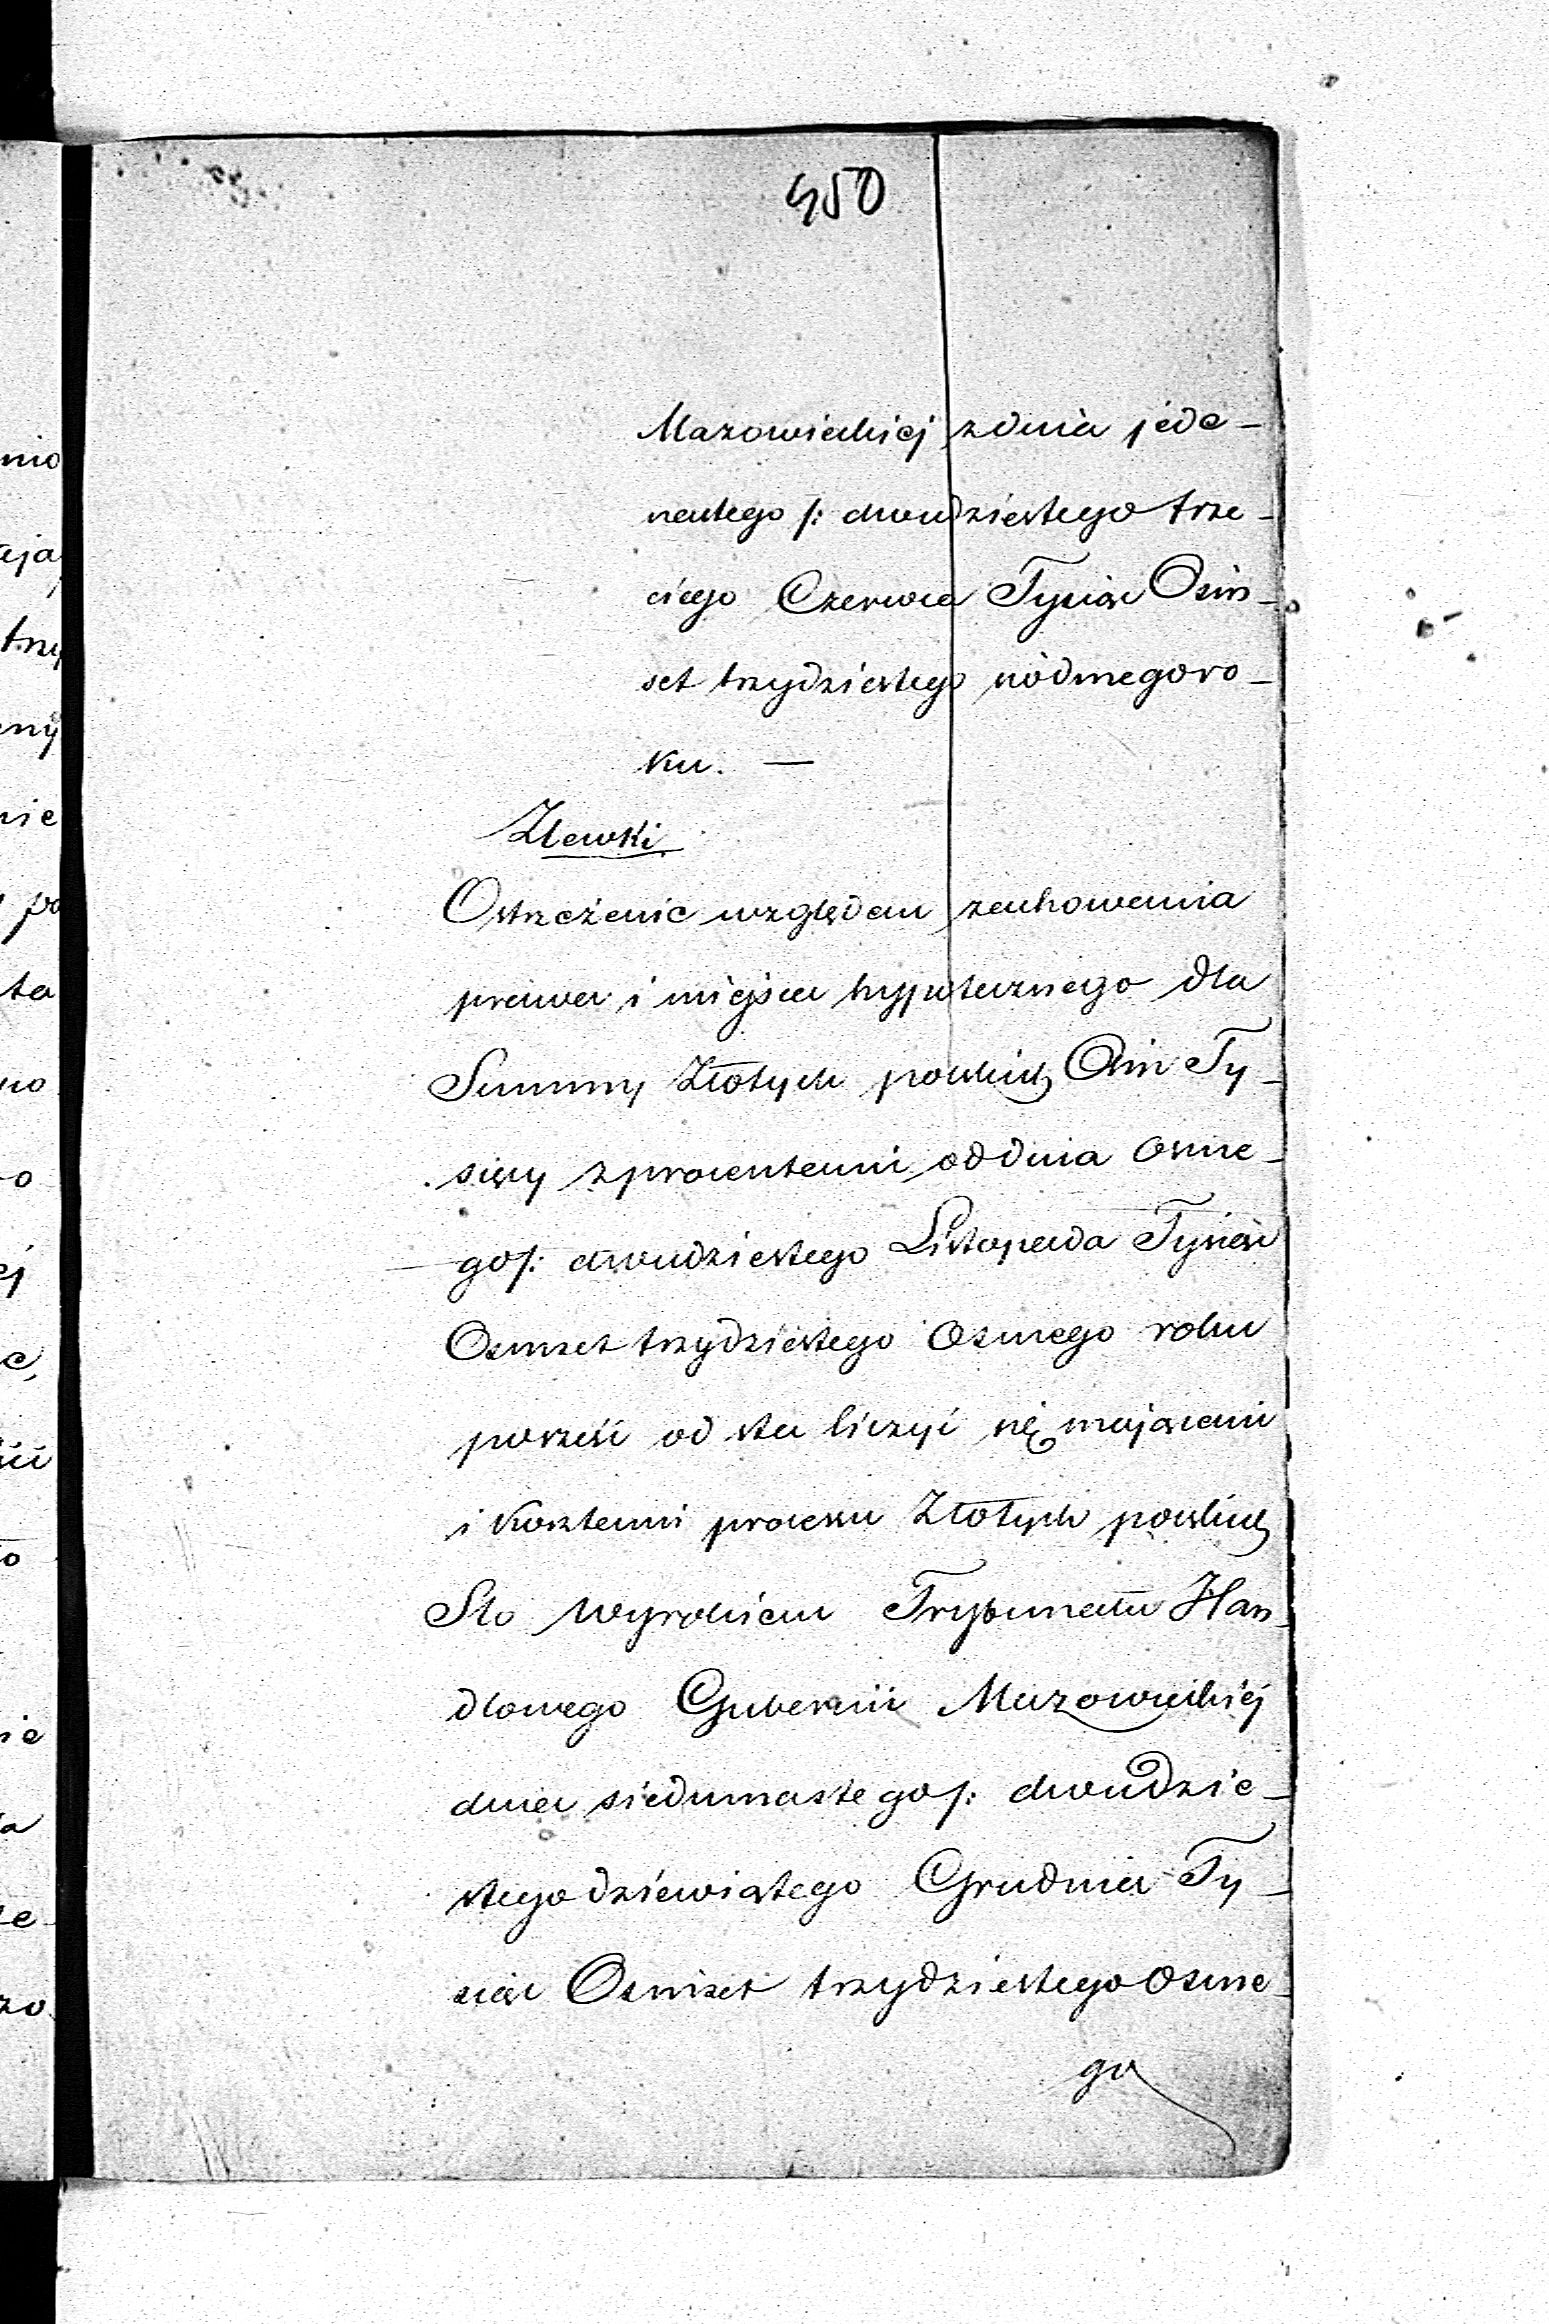 450
Mazowieckiej z dnia jede-
nastego /: dwudziestego trze-
ciego Czerwca Tysiąc Ośm-
set trzydziestego siódmego ro-
ku. —
Zlewki
Ostrzeżenie względem zachowania
prawa i miejsca hypotecznego dla
Summy Złotych polskich Ośm Ty-
sięcy z procentami od dnia osme-
go /: dwudziestego Listopada Tysiąc
Osmset trzydziestego Osmego roku
po sześć od sta liczyć się mającemi
i kosztami processu Złotych polskich
Sto wyrokiem Trybunału Han-
dlowego Gubernii Mazowieckiej
dnia siedmnastego /: dwudzie-
stego dziewiątego Grudnia Ty-
siąc Osmset trzydziestego Osme-
go